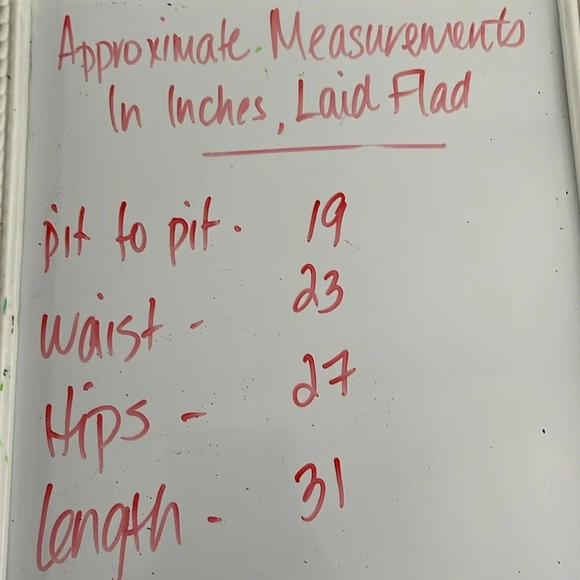 Approximate Measurements
In Inches, Laid Flad
pit to pit. 19
waist - 23
Hips - 27
length - 31